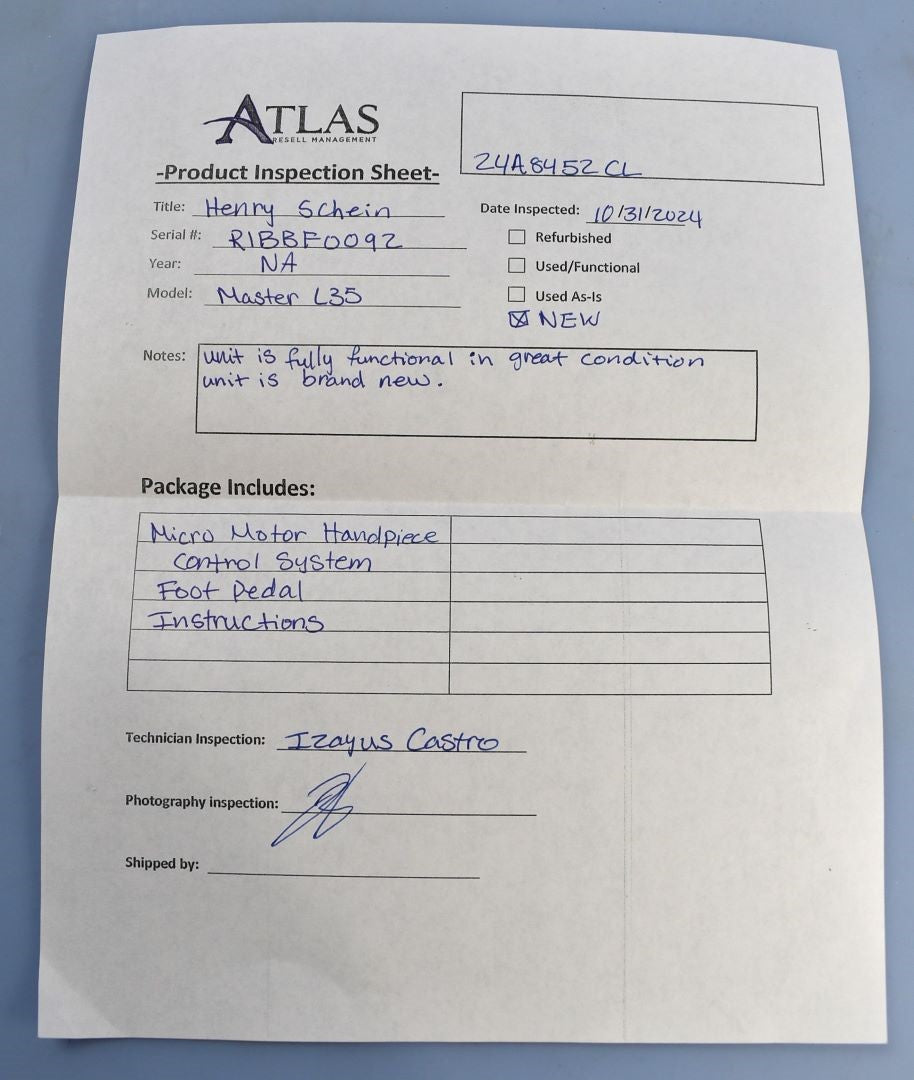 ATLAS
RESELL MANAGEMENT
24A8452 CL
-Product Inspection Sheet-
Title: Henry Schein
Date Inspected: 10/31/2024
Serial #: R1BBF0092
Refurbished
Year: NA
Used/Functional
Model: Master L35
Used As-Is
NEW
Notes: unit is fully functional in great condition
unit is brand new.
Package Includes:
Micro Motor Handpiece
Control System
Foot Pedal
Instructions
Technician Inspection: Izayus Castro
Photography inspection:
Shipped by: